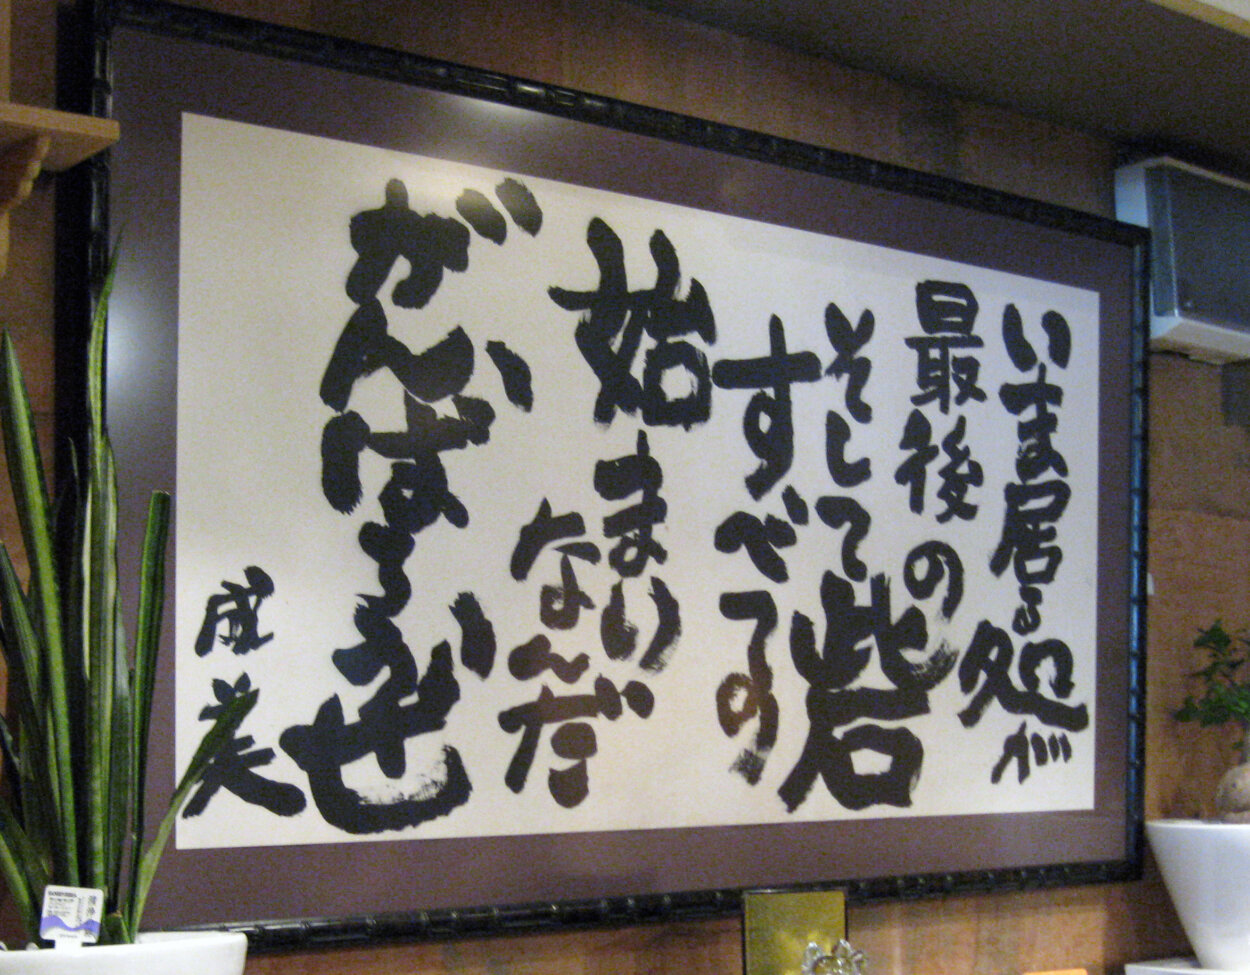 いま居る処が
最後の砦
そして
すべての
始まり
なんだ
がんばろうぜ
成美